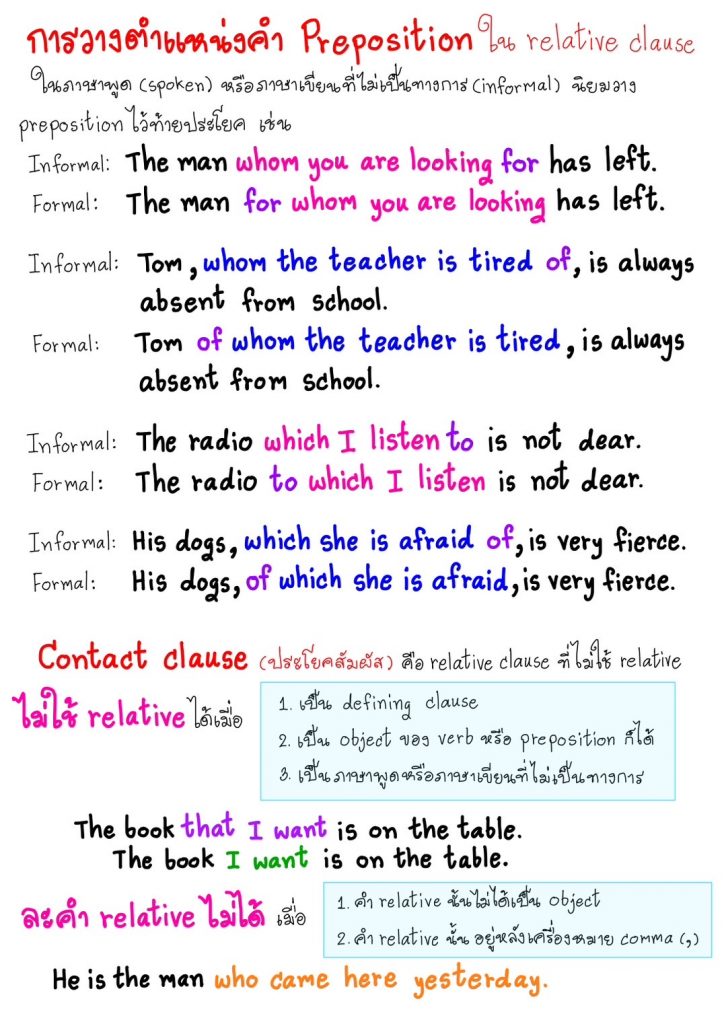 การวางตำแหน่งคำ Preposition ใน relative clause
ในภาษาพูด (spoken) หรือภาษาเขียนที่ไม่เป็นทางการ (informal) นิยมวาง
preposition ไว้ท้ายประโยค เช่น
Informal: The man whom you are looking for has left.
Formal: The man for whom you are looking has left.
Informal: Tom, whom the teacher is tired of, is always
absent from school.
Formal: Tom of whom the teacher is tired, is always
absent from school.
Informal: The radio which I listen to is not dear.
Formal: The radio to which I listen is not dear.
Informal: His dogs, which she is afraid of, is very fierce.
Formal: His dogs, of which she is afraid, is very fierce.
Contact clause (ประโยคสัมผัส) คือ relative clause ที่ไม่ใช้ relative
ไม่ใช้ relative ได้เมื่อ
1. เป็น defining clause
2. เป็น object ของ verb หรือ preposition ก็ได้
3. เป็นภาษาพูดหรือภาษาเขียนที่ไม่เป็นทางการ
The book that I want is on the table.
The book I want is on the table.
ละคำ relative ไม่ได้ เมื่อ
1. คำ relative นั้นไม่ได้เป็น object
2. คำ relative นั้น อยู่หลังเครื่องหมาย comma (,)
He is the man who came here yesterday.